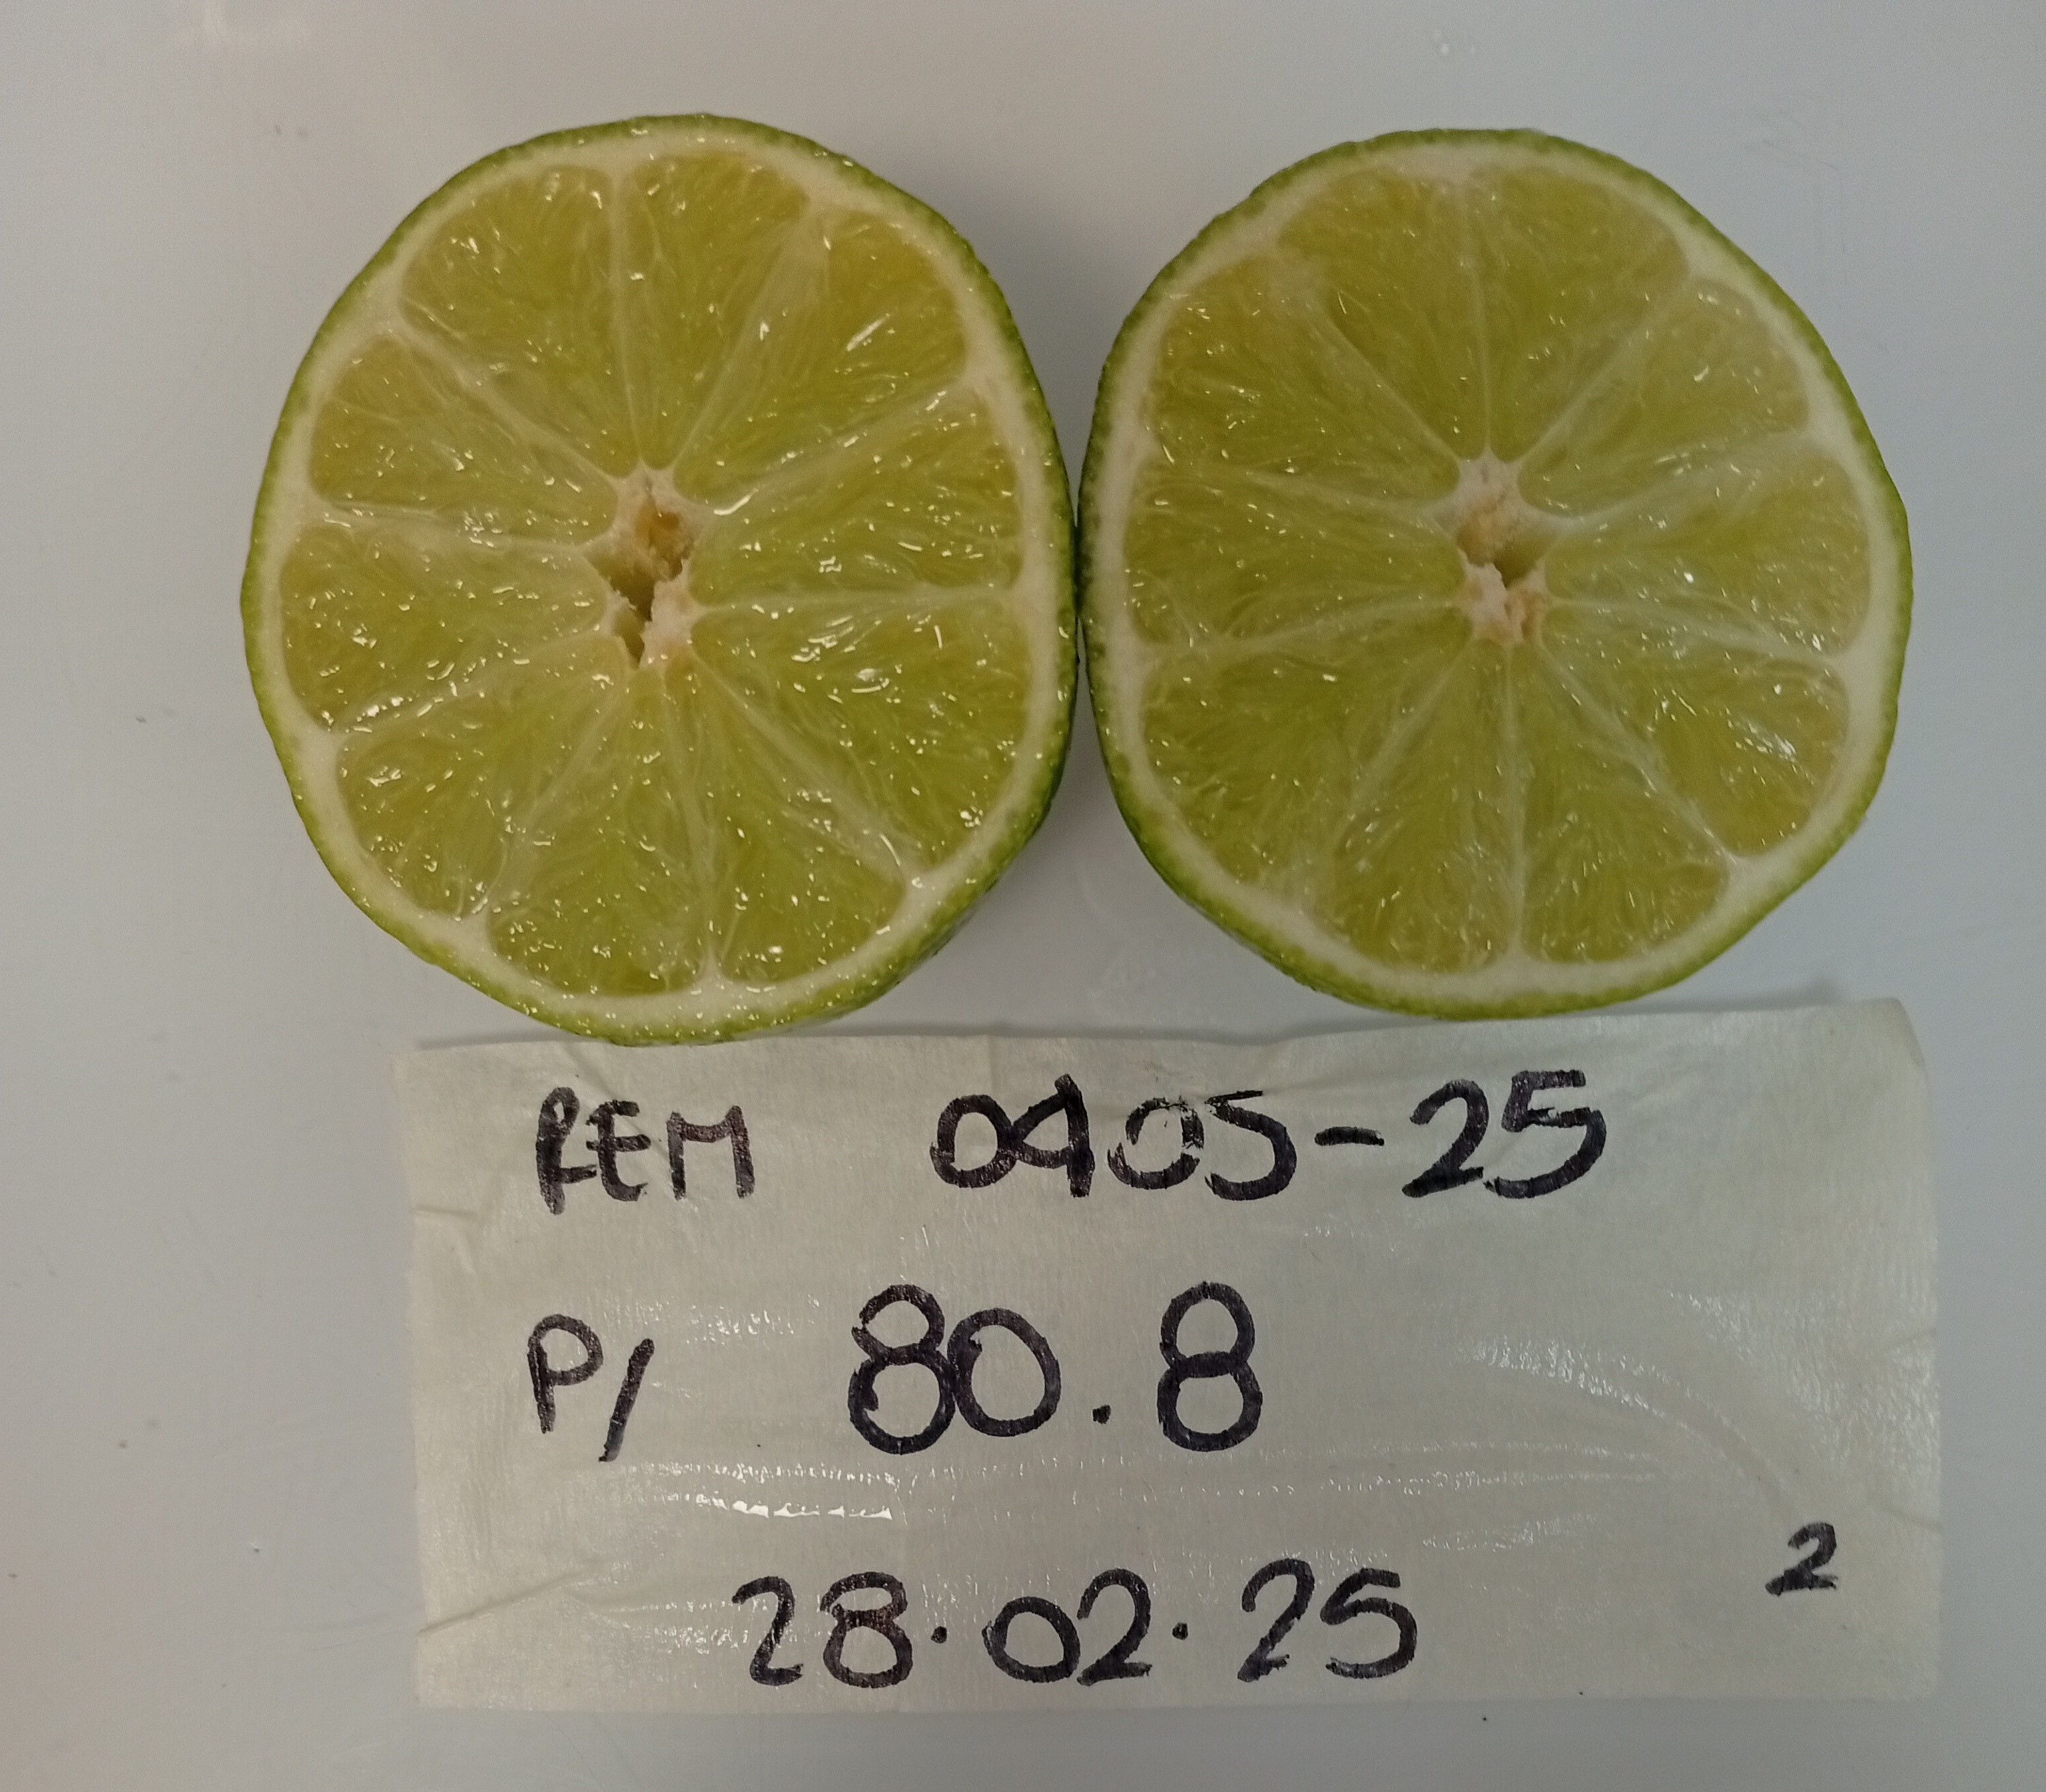 REM 0405-25
P/ 80.8
28.02.25 2